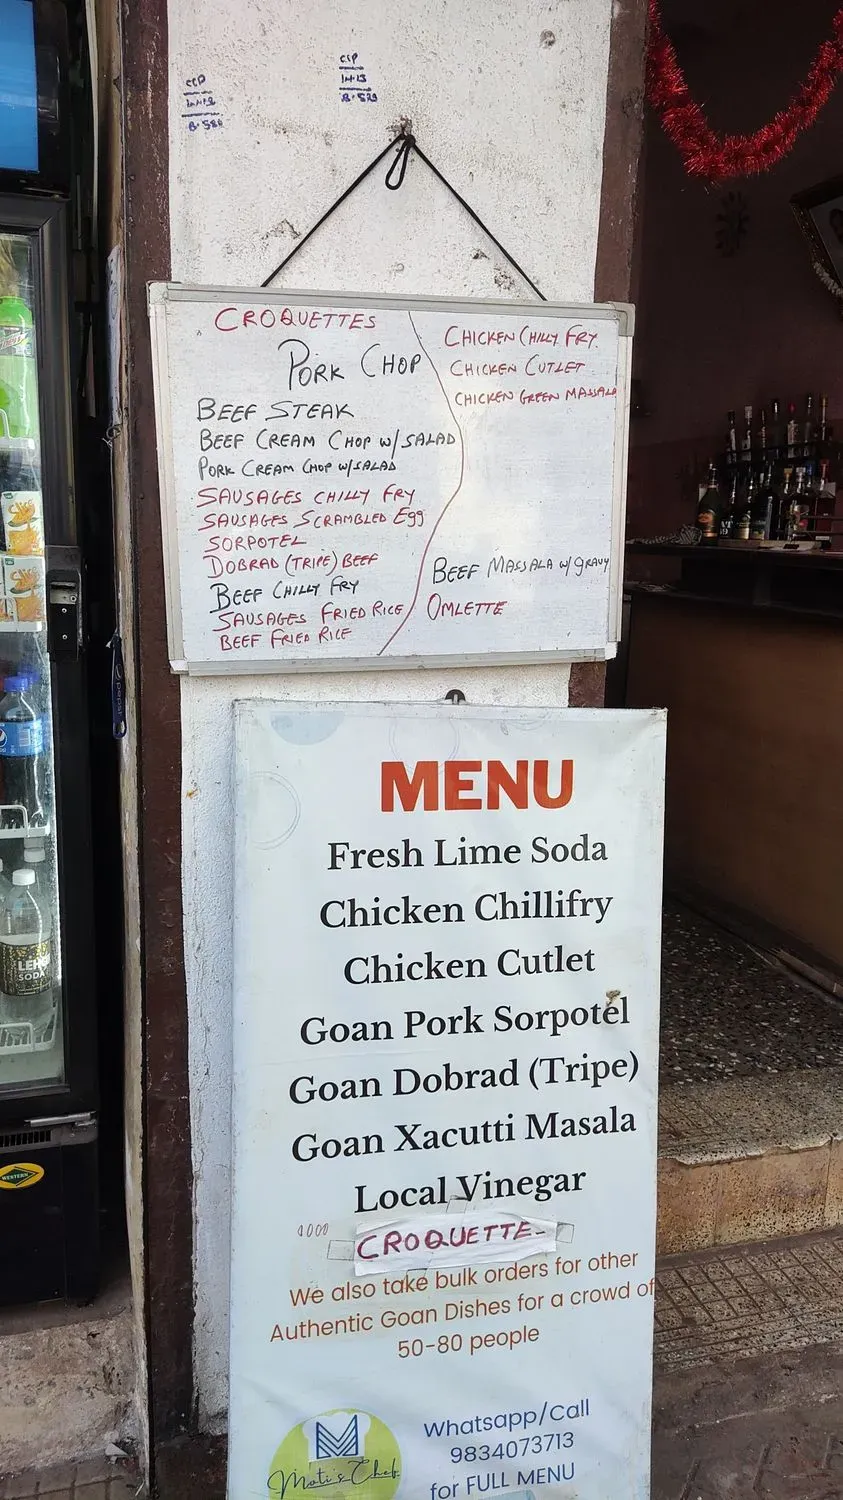 CROQUETTES
PORK CHOP
BEEF STEAK
BEEF CREAM CHOP W/SALAD
PORK CREAM CHOP W/SALAD
SAUSAGES CHILLY FRY
SAUSAGES SCRAMBLED Egg
SORPOTEL
DOBRAD (TRIPE) BEEF
BEEF CHILLY FRY
SAUSAGES FRIED RICE
BEEF FRIED RICE
CHICKEN CHILLY FRY
CHICKEN CUTLET
CHICKEN GREEN MASSALA
BEEF MASSALA W/ GRAVY
OMLETTE
MENU
Fresh Lime Soda
Chicken Chillifry
Chicken Cutlet
Goan Pork Sorpotel
Goan Dobrad (Tripe)
Goan Xacutti Masala
Local Vinegar
CROQUETTE
We also take bulk orders for other
Authentic Goan Dishes for a crowd of
50-80 people
Whatsapp/Call
9834073713
for FULL MENU
Moti's Chef
pepsi
SODA
WESTERN